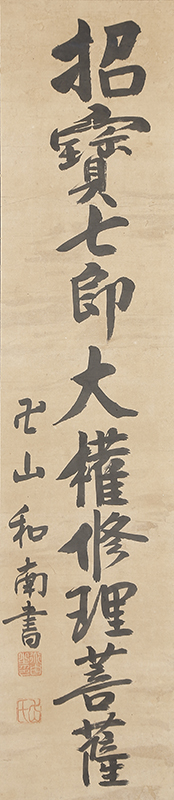 招寶七郎大權修理菩薩
卍山和南書